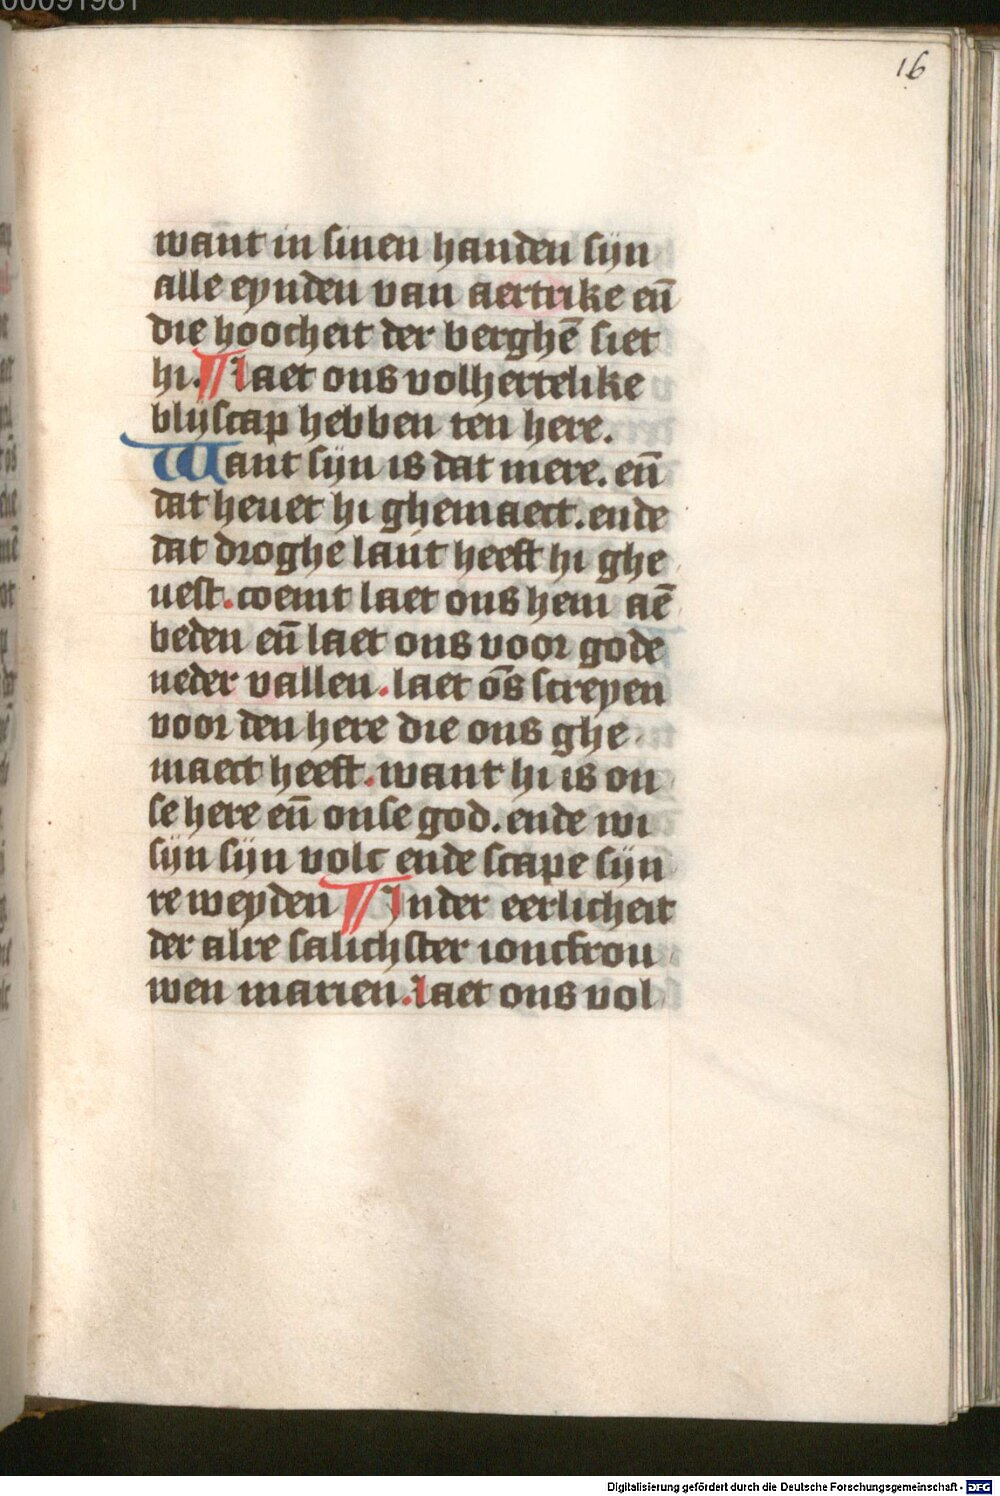 00091981
16
want in sinen handen sijn
alle eynden van aertrike en̄
die hoocheit der berghē siet
hi. ¶ laet ons volhertelike
blijscap hebben ten here.
Want sijn is dat mere. en̄
dat heuet hi ghemaect. ende
dat droghe lant heeft hi ghe
uest. coemt laet ons hem aē
beden en̄ laet ons voor gode
neder vallen. laet ōs screyen
voor den here die ons ghe
maect heeft. want hi is on
se here en̄ onse god. ende wi
sijn sijn volc ende scape sijn
re weyden ¶ In der eerlicheit
der alre salichster ioncfrou
wen marien. laet ons vol
Digitalisierung gefördert durch die Deutsche Forschungsgemeinschaft - DFG